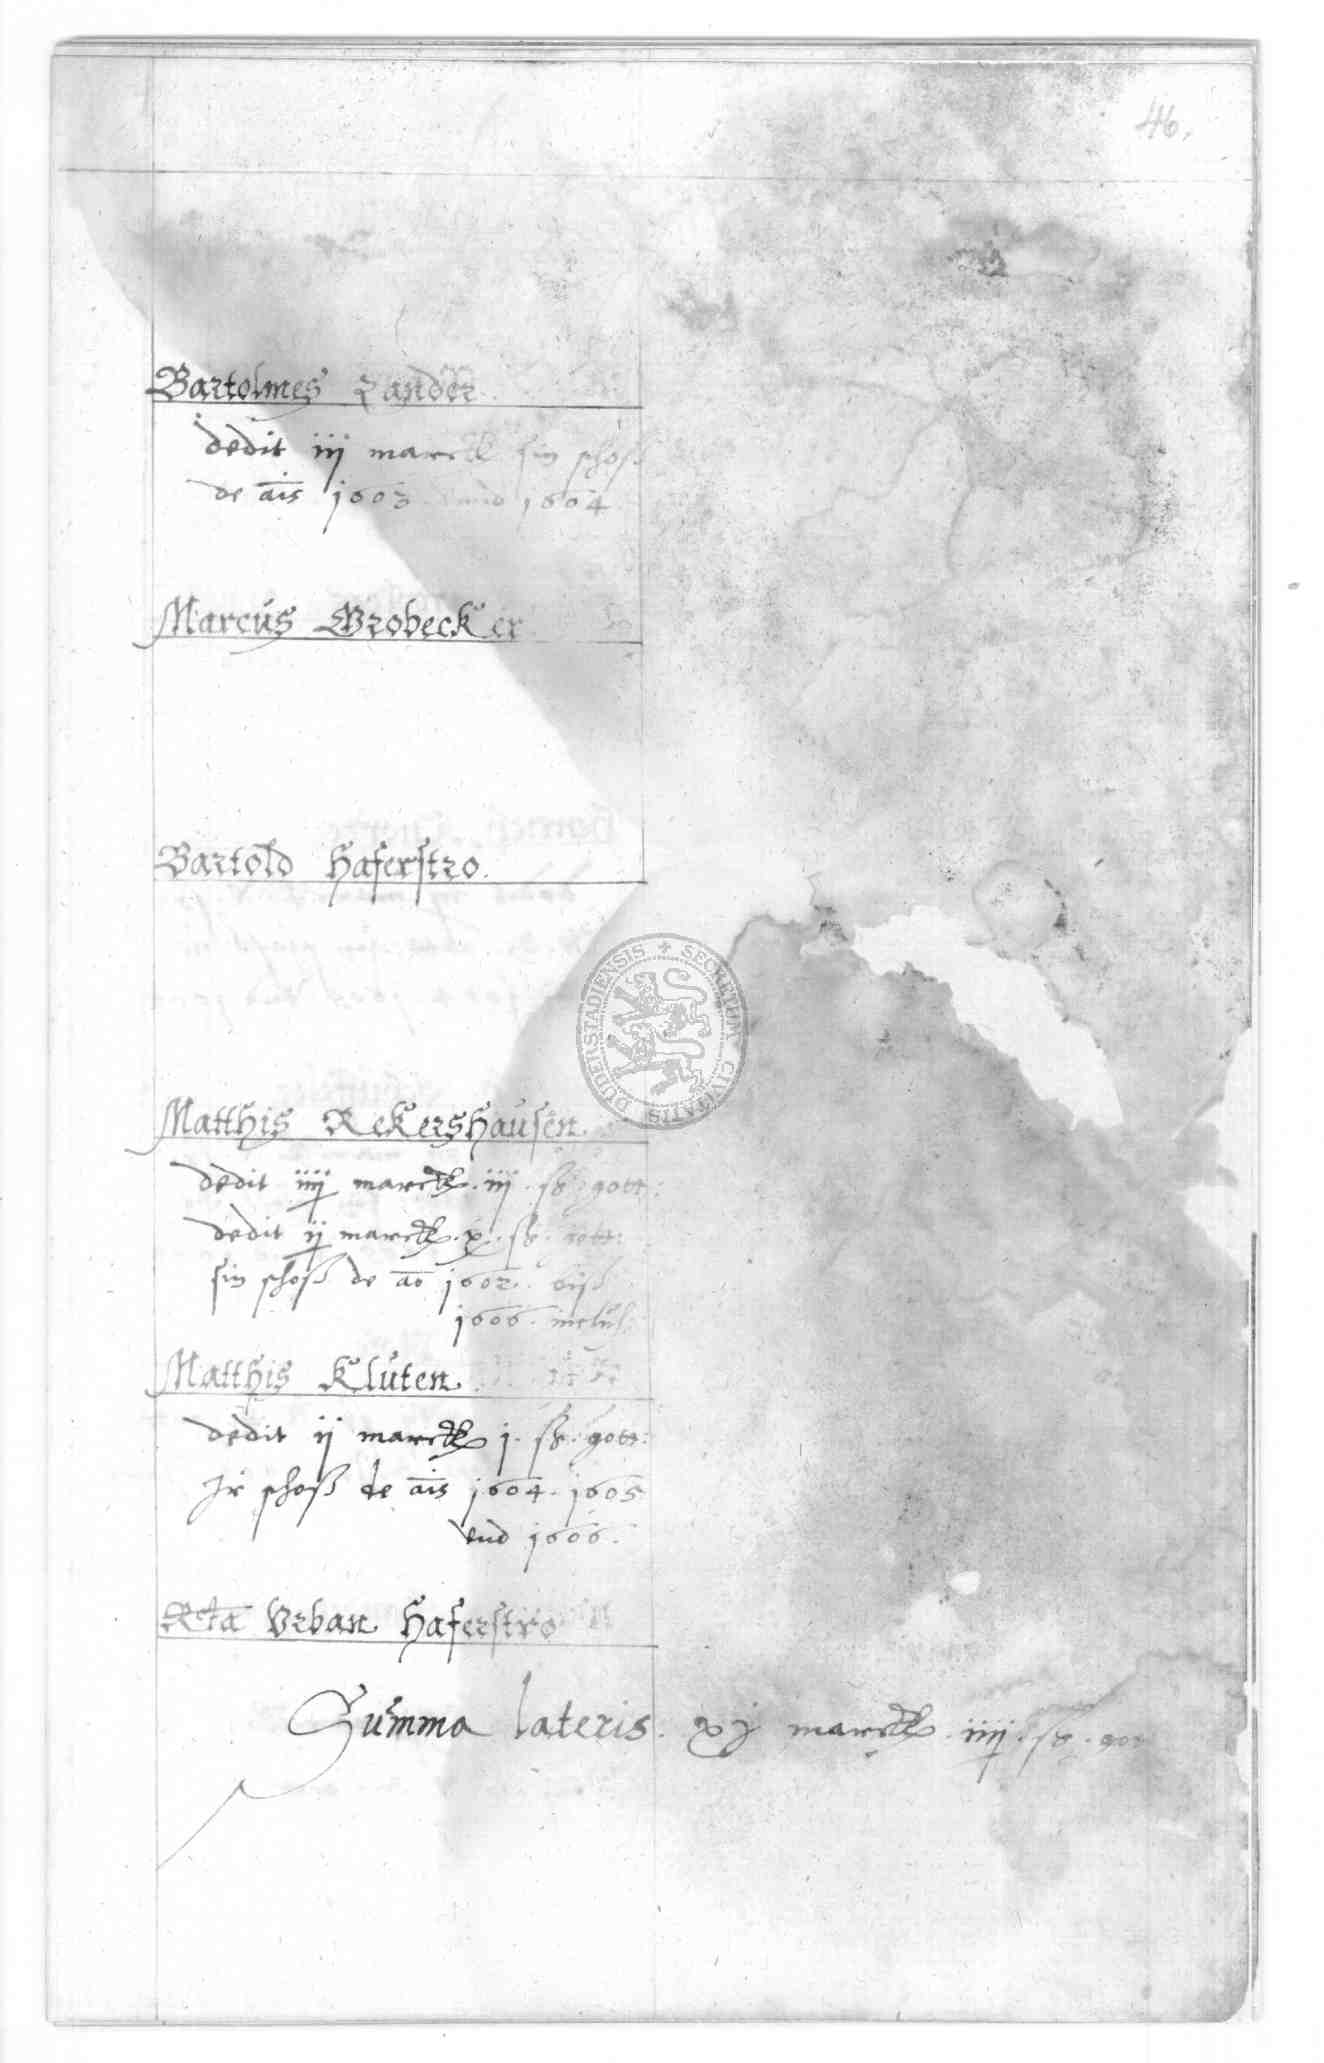 46.
Bartolmes Zander
dedit iij marck sin schoß
de ais 1603 vnd 1604
Marcus Grobecker
Bartold Haferstro.
SECRETUM CIVITATIS DUDERSTADIENSIS
Matthis Rekershausen
dedit iiij marck. iij. ß. gott:
dedit ij marck. x. ß. gott:
sin schoß de ao 1602. biß
1606. inclus:
Matthis Kluten.
dedit ij marck j. ß. gott:
Jr schoß de ais 1604. 1605
vnd 1606.
Rta Vrban Haferstro
Summa lateris. xj marck. iiij. ß. gott